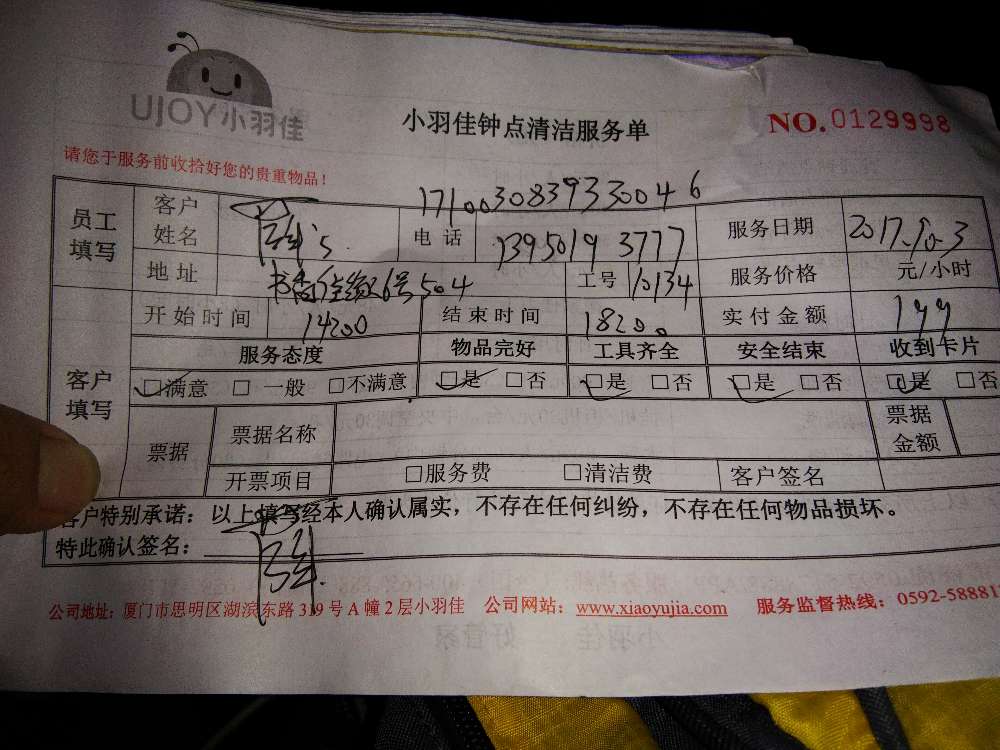 UJOY小羽佳
小羽佳钟点清洁服务单
NO.0129998
请您于服务前收拾好您的贵重物品！
1710030839330046
员工填写 客户姓名 电话 13950193777 服务日期 2017.10.3
地址 书香佳缘6号504 工号 10134 服务价格 元/小时
客户填写 开始时间 14:00 结束时间 18:00 实付金额 144
服务态度 物品完好 工具齐全 安全结束 收到卡片
□满意 □一般 □不满意 □是 □否 □是 □否 □是 □否 □是 □否
票据 票据名称 票据金额
开票项目 □服务费 □清洁费 客户签名
客户特别承诺：以上填写经本人确认属实，不存在任何纠纷，不存在任何物品损坏。
特此确认签名：
公司地址：厦门市思明区湖滨东路319号A幢2层小羽佳 公司网站：www.xiaoyujia.com 服务监督热线：0592-58881